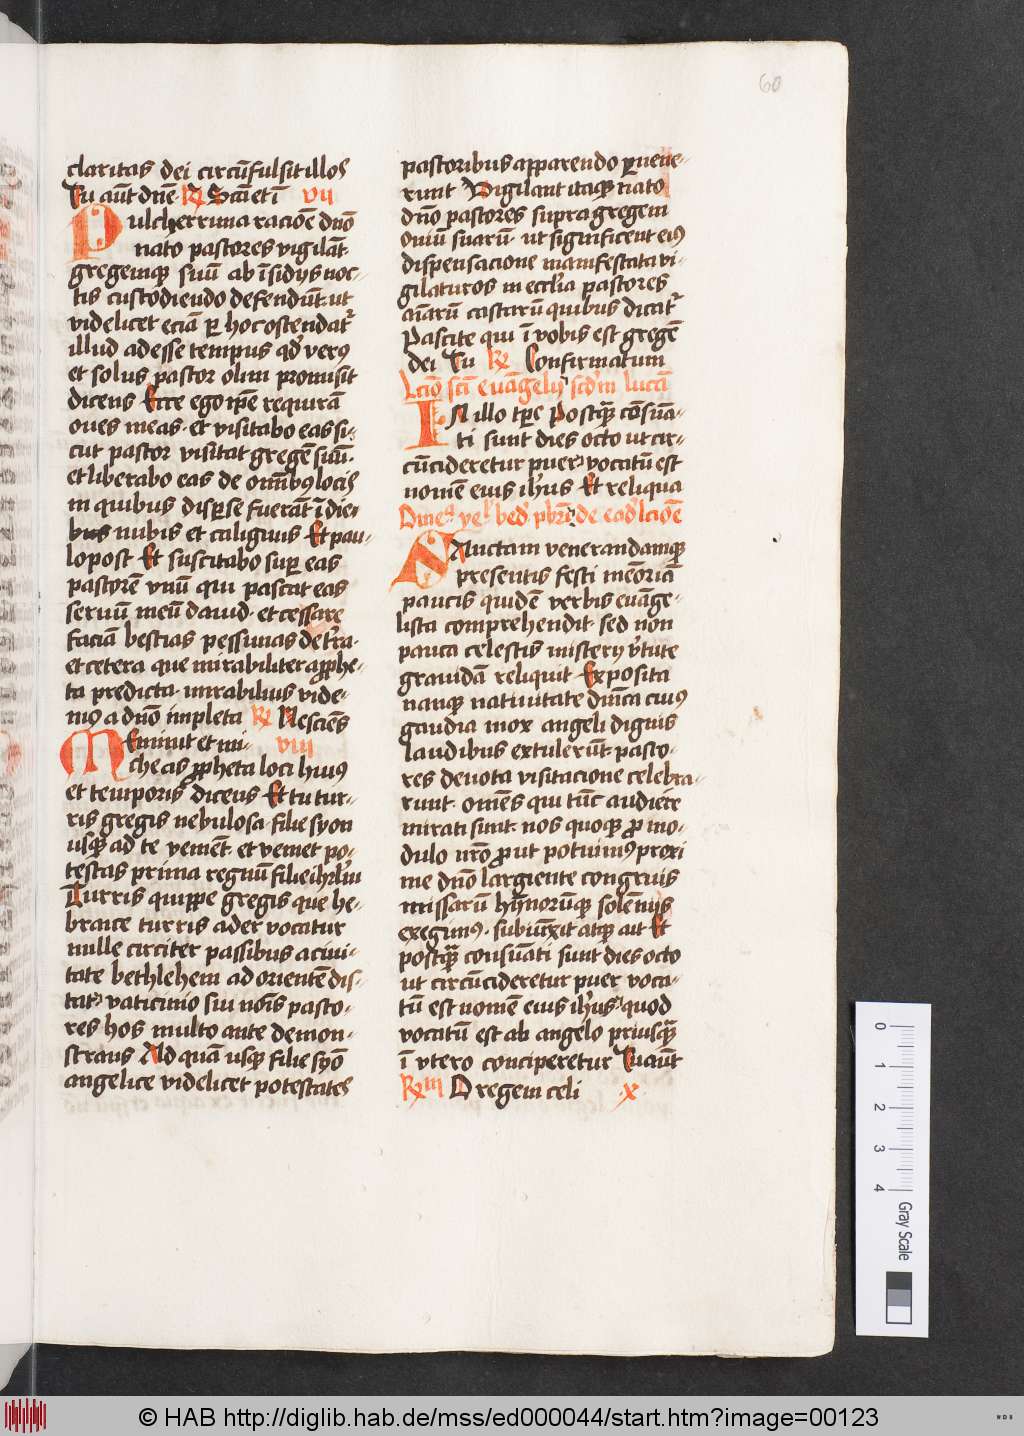 60
claritas dei circūfulsit illos
Tu aūt dn̄e R Scī et ī vii
Pulcherrima racōe dn̄o
nato pastores vigilāt
gregemqꝫ suū ab īsidijs noc-
tis custodiendo defendūt ut
videlicet eciā ꝑ hoc ostendat᷑
illud adesse tempus qd̓ verꝰ
et solus pastor olim promisit
dicens Ecce ego ip̄e requirā
oues meas et visitabo eas si-
cut pastor visitat gregē suū
et liberabo eas de om̄ibꝰ locis
in quibus disp̄se fuerāt ī die
nubis et caliginis Et pau-
lo post Et suscitabo suꝑ eas
pastorē vnū qui pascat eas
seruū meū dauid et cessare
faciā bestias pessimas de t̓ra
et cetera que mirabiliter a ꝓphe-
ta predicta mirabilius vide-
mꝰ a dn̄o impleta R Nesciēs
Meminit et mi- viii
cheas ꝓpheta loci huiꝰ
et temporis dicens Et tu tur-
ris gregis nebulosa filie syon
usqꝫ ad te veniēt et veniet po-
testas prima regnū filie ihrl̄m
Turris quippe gregis que he-
braice turris ader vocatur
mille circiter passibus a ciui-
tate bethlehem ad orientē dis-
tat vaticinio sui nōis pasto-
res hos multo ante demon-
strans Ad quā usqꝫ filie syō
angelice videlicet potestates
pastoribus apparendo ꝑuene-
runt Vigilant itaqꝫ nato
dn̄o pastores supra gregem
ouiū suarū ut significent eiꝰ
dispensacione manifestata vi-
gilaturos in eccl̄ia pastores
aīarū castarū quibus dicat᷑
Pascite qui ī vobis est gregē
dei Tu R Confirmatum
Lcīo scī euāgelij scd̓m lucā
In illo tp̄e Postqꝫ cōsūa-
ti sunt dies octo ut cir-
cūcideretur puer vocatū est
nomē eius ih̄us Et reliqua
Omeᵃ veˡ bed̓ pb̄ri de eād̓ lcīōe
Sanctam venerandamqꝫ
presentis festi memoriā
paucis quidē verbis euāge-
lista comprehendit sed non
pauca celestis misterij v̓tute
grauidā reliquit Exposita
namqꝫ natiuitate dn̄ica cuiꝰ
gaudia mox angeli dignis
laudibus extulerūt pasto-
res deuota visitacione celebra-
runt om̄es qui tūc audiere
mirati sunt nos quoqꝫ ꝓ mo-
dulo nr̄o ꝓut potuimꝰ proxi
me dn̄o largiente congruis
missarū hȳnorūqꝫ solēnijs
exegimꝰ subiūxit atqꝫ ait Et
postqꝫ consūati sunt dies octo
ut circūcideretur puer voca-
tū est nomē eius ih̄us quod
vocatū est ab angelo priusqꝫ
ī vtero conciperetur Tu aūt
R iii O regem celi x
0
1
2
3
4
Gray Scale
© HAB http://diglib.hab.de/mss/ed000044/start.htm?image=00123